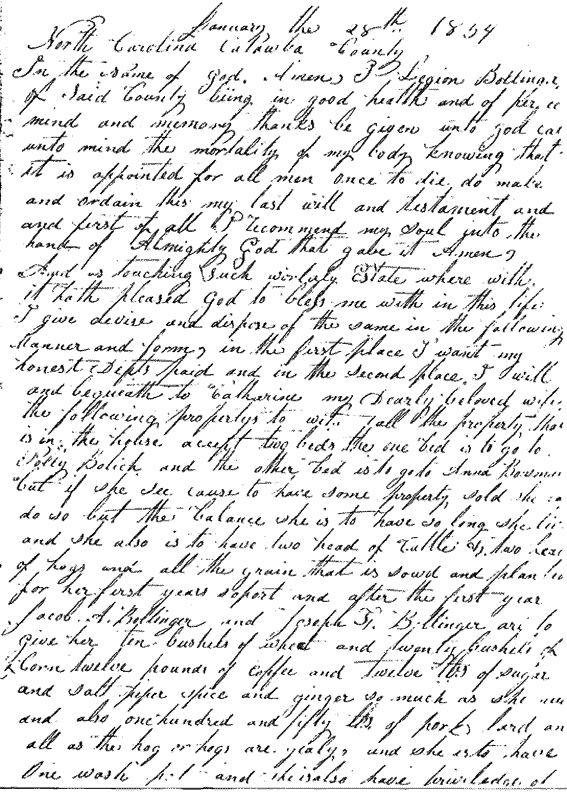 January the 28th 1854
North Carolina Catawba County
In the Name of God. Amen, I Legion Bollinger
of Said County being in good health and of per
mind and memory thanks be given unto god cal
unto mind the mortality of my body knowing that
it is appointed for all men once to die do make
and ordain this my last will and testament and
and first of all I recommend my soul into the
hand of Almighty God that gave it Amen,
And as touching Such worldly Estate where with
it hath pleased God to bless me with in this life
I give devise and dispose of the same in the following
Manner and form, in the first place I want my
honest Depts paid and in the second place I will
and bequeath to Catharine my Dearly beloved wife
the following propertys to wit. all the property that
is in the house accept two beds the one bed is to go to
Polly Bolich and the other bed is to go to Anna Bowman
but if she see cause to have some property sold she
do so but the balance she is to have so long she
and she also is to have two head of Cattle & two head
of hogs and all the grain that is sowd and plan
for her first years soport and after the first year
Jacob A. Bollinger and Joseph F. Bollinger are to
give her ten bushels of wheat and twenty bushels of
Corn twelve pounds of coffee and twelve lbs of sugar
and salt piper spice and ginger so much as she
and also one hundred and fifty lbs of pork, lard an
all as the hog or hogs are, and she is to have
One wash pot and she is also have priviledge of